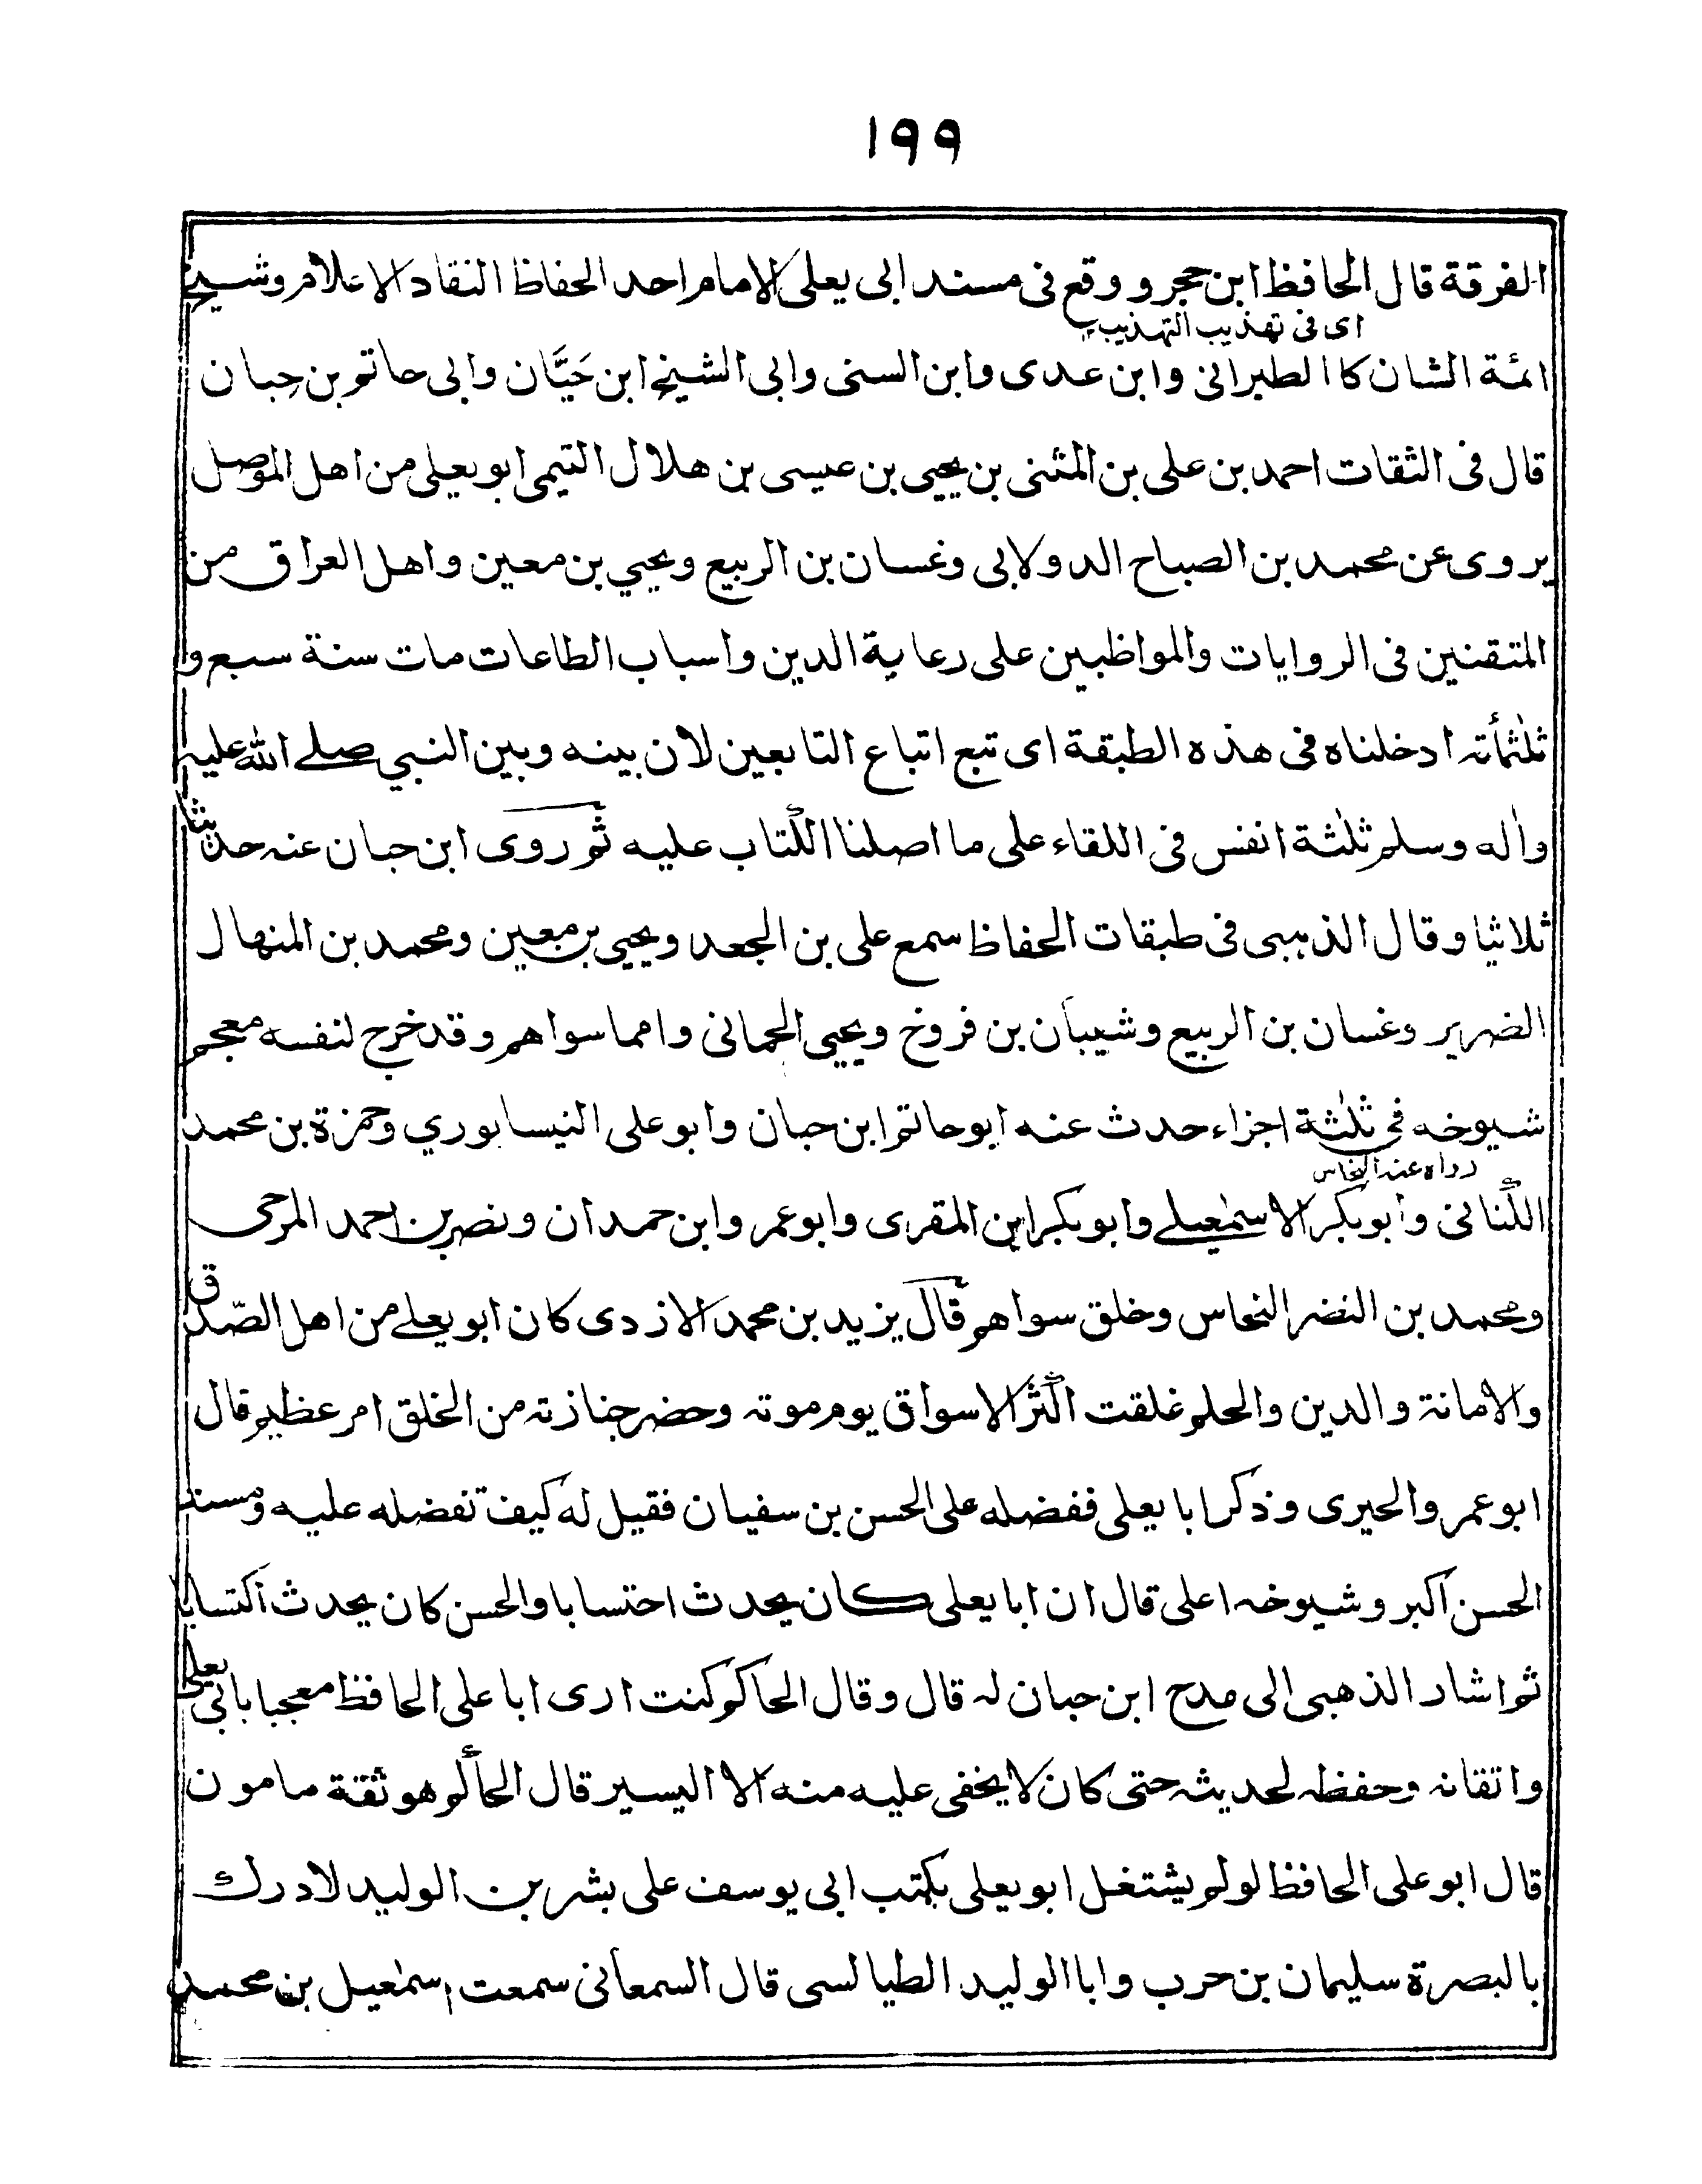 ١٩٩
الفرقة قال الحافظ ابن حجر ووقع فى مسند ابى يعلى الامام احد الحفاظ النقاد الاعلام وشيخ
اى فى تهذيب التهذيب
ائمة الشان كالطبرانى وابن عدى وابن السنى وابى الشيخ ابن حَيَّان وابى حاتم بن حِبان
قال فى الثقات احمد بن على بن المثنى بن يحيى بن عيسى بن هلال التيمى ابو يعلى من اهل الموصل
يروى عن محمد بن الصباح الدولابى وغسان بن الربيع ويحيي بن معين واهل العراق من
المتقنين فى الروايات والمواظبين على رعاية الدين واسباب الطاعات مات سنة سبع و
ثلٰثمأته ادخلناه فى هذه الطبقة اى تبع اتباع التابعين لان بينه وبين النبي صلے الله عليه
واٰله وسلم ثلٰثة انفس فى اللقاء على ما اصلنا الكتاب عليه ثم روى ابن حبان عنه حديثا
ثلاثيا وقال الذهبى فى طبقات الحفاظ سمع على بن الجعد ويحيي بن معين ومحمد بن المنهال
الضرير وغسان بن الربيع وشيبان بن فروخ ويحيى الحمانى وامما سواهم وقد خرج لنفسه معجم
شيوخه فى ثلٰثة اجزاء حدث عنه ابو حاتم ابن حبان وابو على النيسابوري وحمزة بن محمد
رواه عنه النحاس
الكنانى وابو بكر الاسمٰعيلے وابو بكر ابن المقرى وابو عمر وابن حمدان ونصر بن احمد المرجى
ومحمد بن النضر النحاس وخلق سواهم قال يزيد بن محمد الازدى كان ابو يعلے من اهل الصّدق
والامانة والدين والحلم غلقت اكثر الاسواق يوم موته وحضر جنازته من الخلق امر عظيم قال
ابو عمر والحيرى وذكر ابا يعلى ففضله على الحسن بن سفيان فقيل له كيف تفضله عليه ومسند
الحسن اكبر وشيوخه اعلى قال ان ابا يعلى كان يحدث احتسابا والحسن كان يحدث اكتسابا
ثم اشار الذهبى الى مدح ابن حبان له قال وقال الحاكم كنت ارى ابا على الحافظ معجبا بابى يعلى
واتقانه وحفظه لحديثه حتى كان لا يخفى عليه منه الا اليسير قال الحاكم هو ثقة مامون
قال ابو على الحافظ لو لم يشتغل ابو يعلى بكتب ابى يوسف على بشر بن الوليد لادرك
بالبصرة سليمان بن حرب وابا الوليد الطيالسى قال السمعانى سمعت اسمٰعيل بن محمد